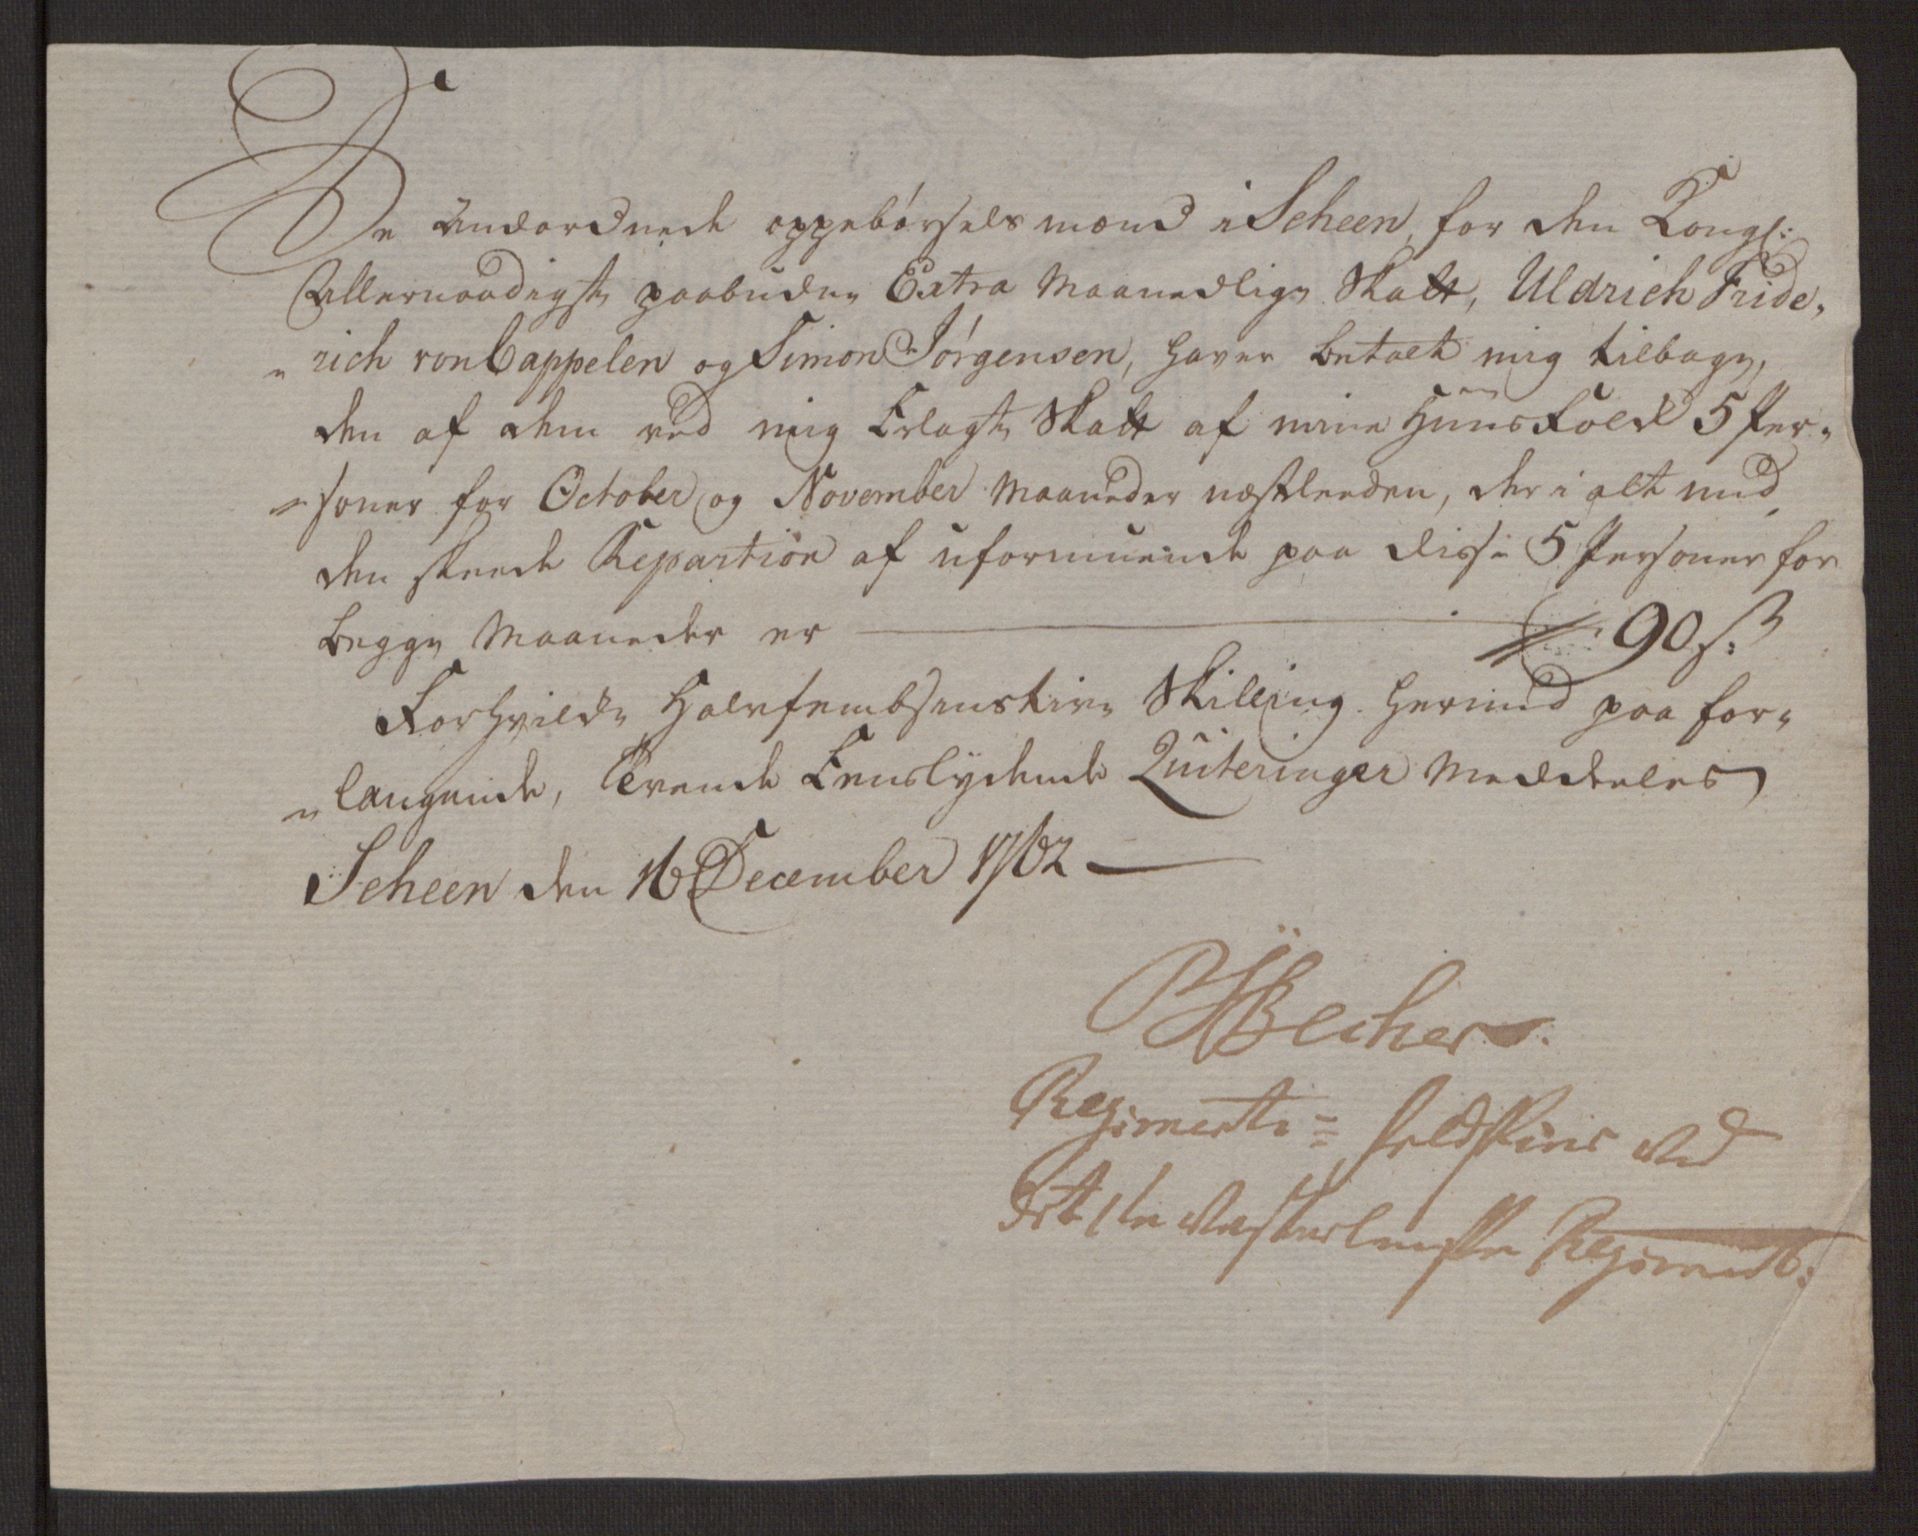 De Anordnede oppebørsels mænd i Scheen, for den Kongl:
Allernaadigst paabudne Extra Maanedlige Skatt, Uldrich Fride„
„rich von Cappelen og Simon Jørgensen, haver betalt mig tilbage,
den af dem ved mig Erlagte Skatt af mine Huusfolk 5 Per„
„soner for October og November Maaneder næstleeden, der i alt med
den skeede Repartion af uformuende paa disse 5 Personer for
begge Maaneder er — 90 s:
For hvilke Halvfembsenstive Skilling hermed paa for„
„langende, tvende Eenslydende Quiteringer meddeeles
Scheen den 16 December 1762 —
Becher
Regiments= feldskier ved
det 1te Vesterlenske Regiment: